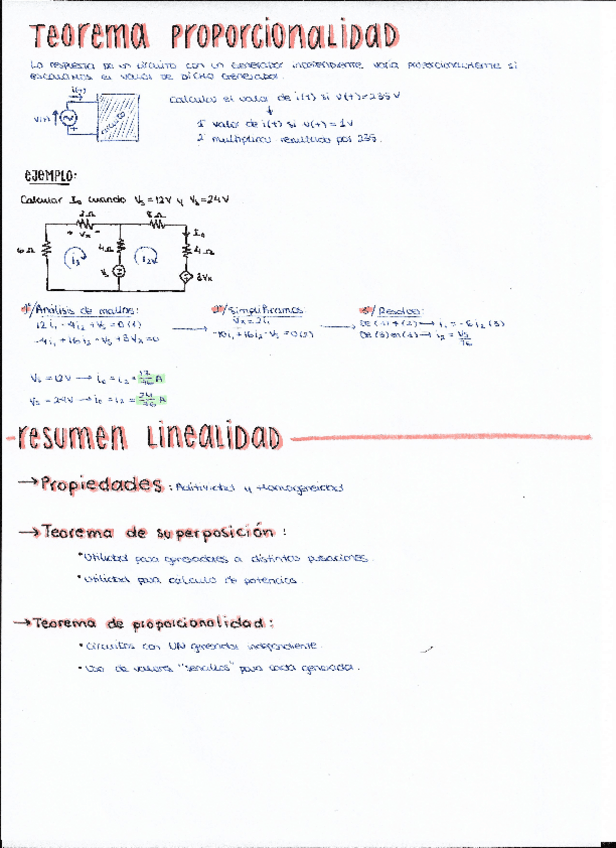 Teorema Proporcionalidad
La respuesta de un circuito con un generador independiente varía proporcionalmente si
escalamos el valor de dicho generador.
i(t)
V(t)
circuito
Calcular el valor de i(t) si v(t)=235V
1º valor de i(t) si v(t)=1V
2º multiplicar resultado por 235.
ejemplo:
Calcular I₀ cuando Vs=12V y Vs=24V
2Ω
8Ω
+ Vx -
I₀
6Ω
4Ω
4Ω
Vs
8Vx
1º/Análisis de mallas:
2º/Simplificamos:
3º/Resolvo:
12i₁-4i₂+Vs=0(1)
Vx=2i₁
-4i₁+16i₂-Vs+8Vx=0
Vs=12V → i₀=i₂=12/76 A
Vs=24V → i₀=i₂=24/76 A
resumen Linealidad
→Propiedades: Aditividad y Homogeneidad
→Teorema de superposición:
•Utilidad para generadores a distintas pulsaciones.
•Utilidad para cálculo de potencias.
→Teorema de proporcionalidad:
•Circuitos con UN generador independiente.
•Uso de valores "sencillos" para cada generador.